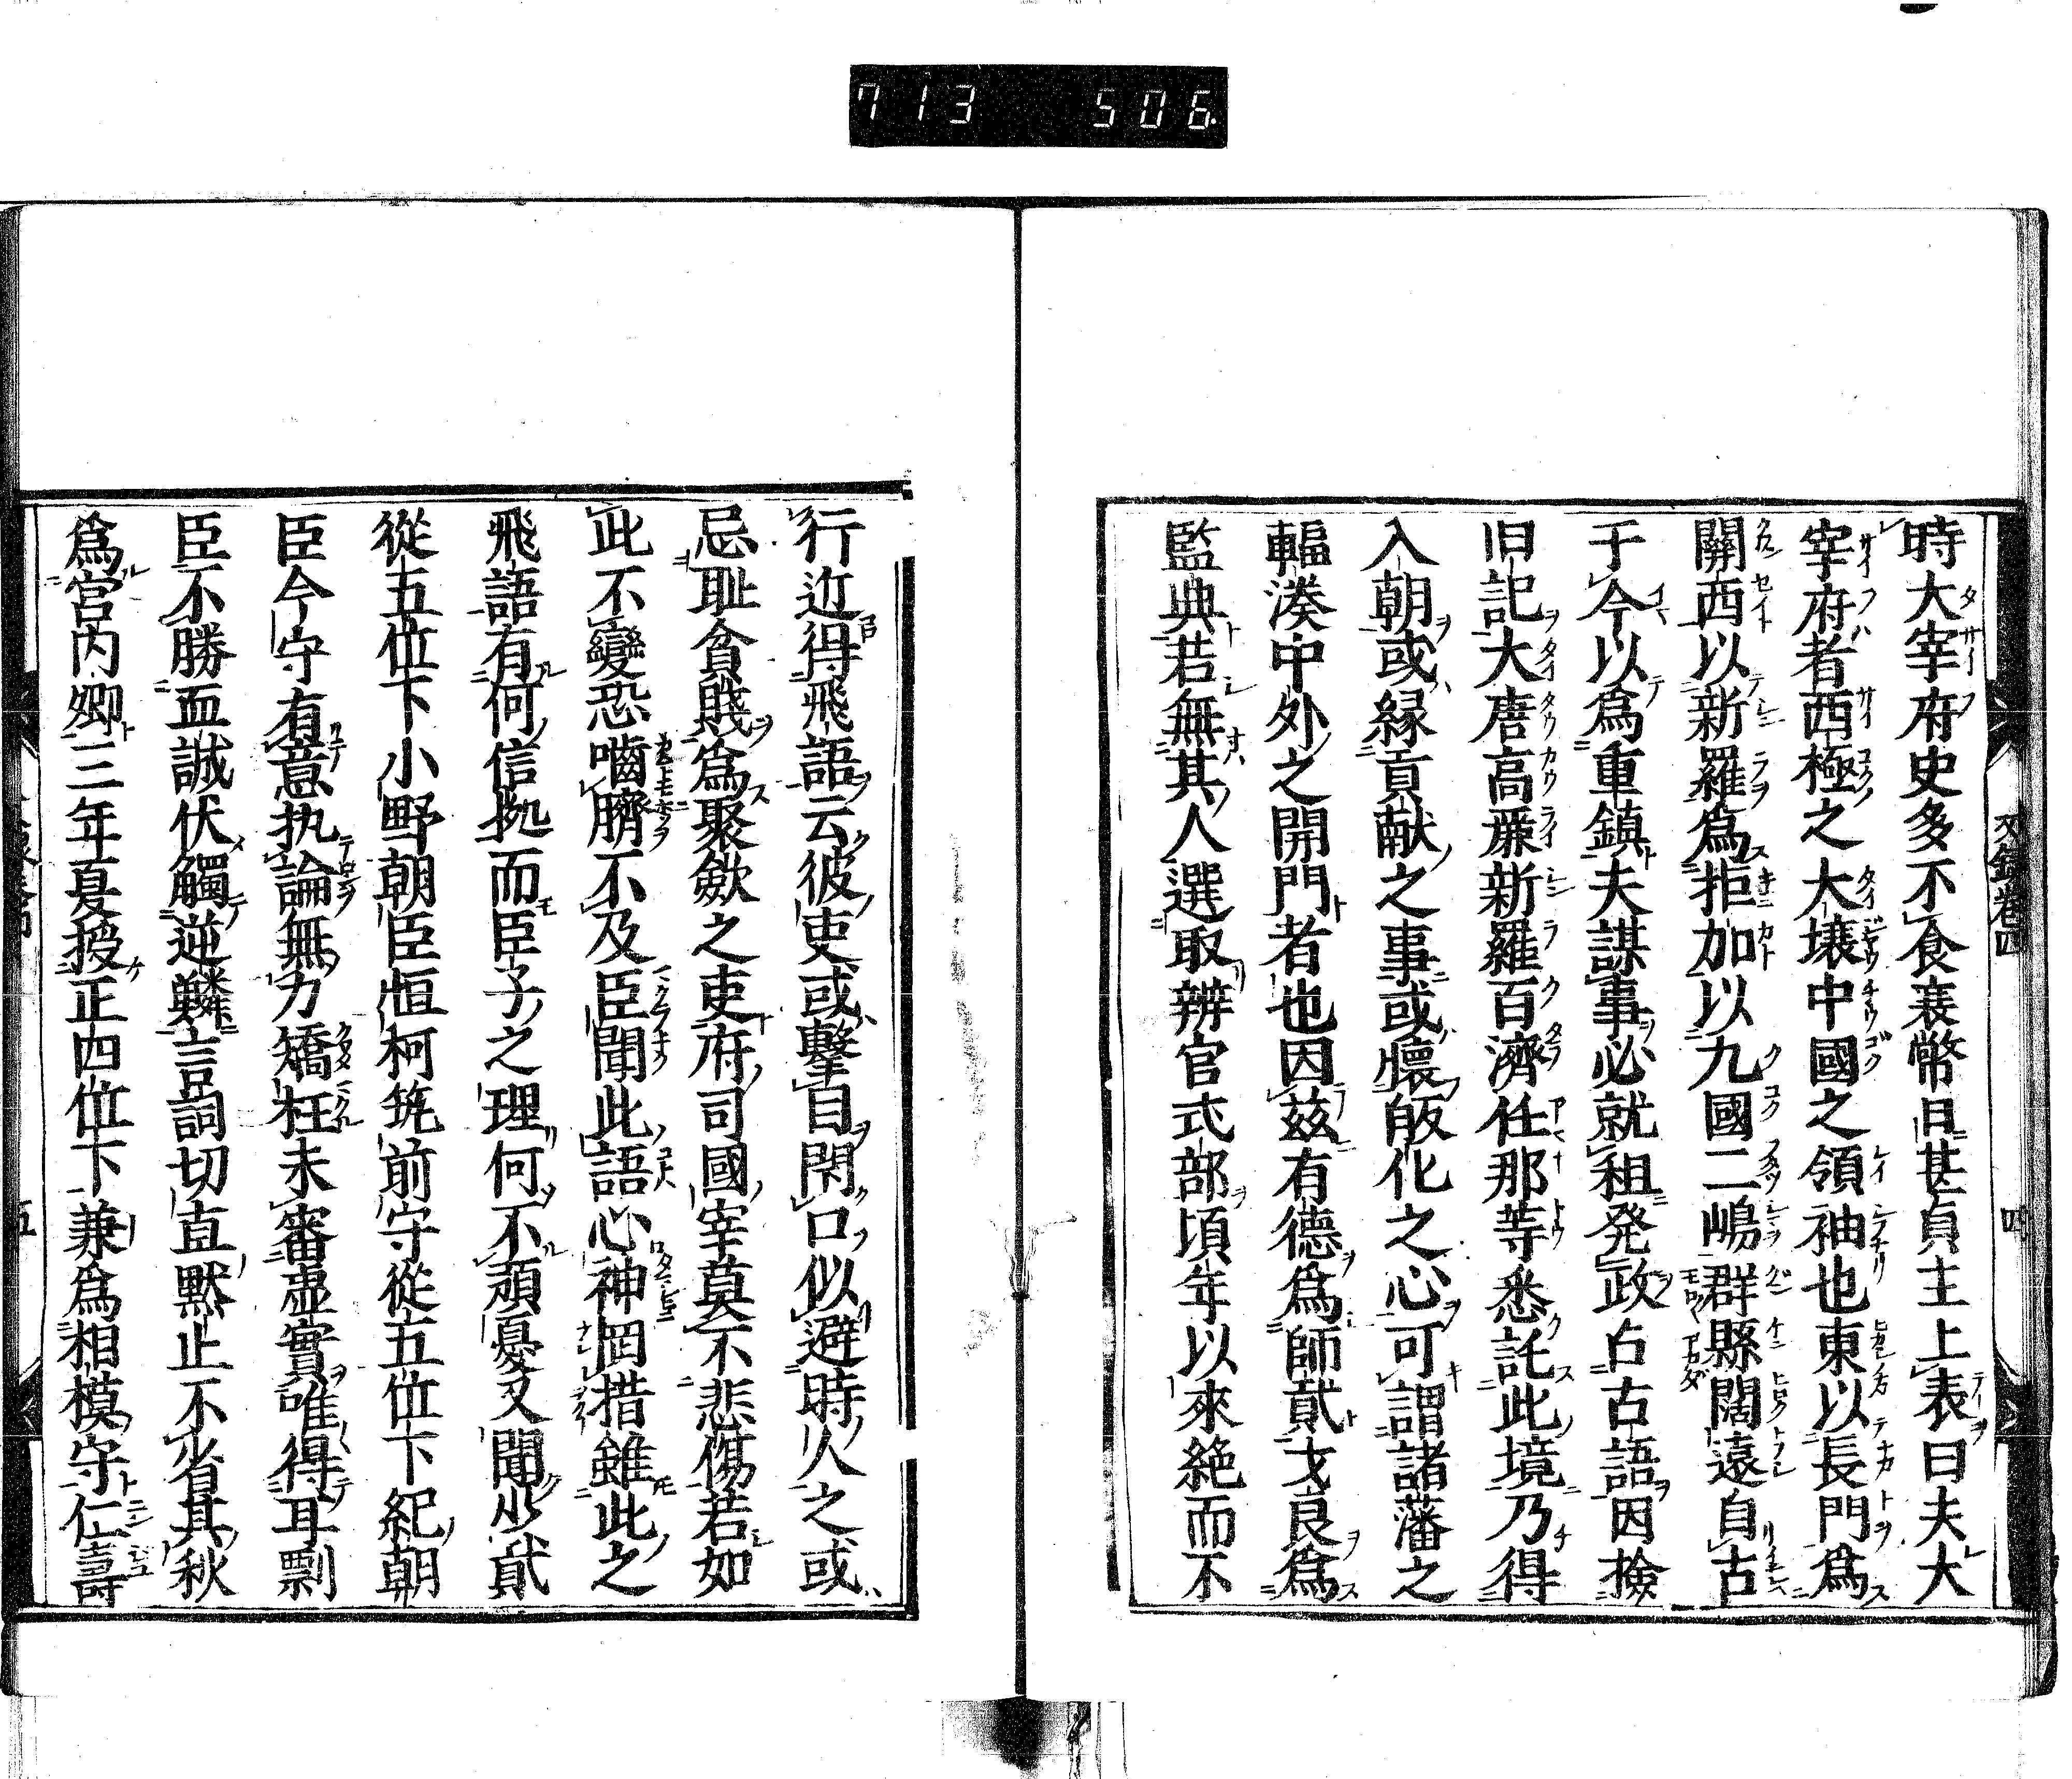 713 506
文録卷四
四
時大宰府吏多不食衰幣日甚貞主上表曰夫大
宰府者西極之大壌中國之領袖也東以長門爲
關西以新羅爲拒加以九國二嶋群縣闊遠自古
于今以爲重鎮夫謀事必就祖発政占古語因撿
旧記大唐高麗新羅百濟任那等悉託此境乃得
入朝或縁貢献之事或懐皈化之心可謂諸藩之
輻湊中外之開門者也因茲有德爲師貳才良爲
監典若無其人選取辨官式部頃年以來絶而不
行近得飛語云彼吏或擊自閇口似避時人之或
忌耻貧賤爲聚歛之吏府司國宰莫不悲傷若如
此不變恐嚙臍不及臣聞此語心神罔措雖此之
飛語有何信拠而臣子之理何不顧憂又聞少貮
從五位下小野朝臣恒柯筑前守從五位下紀朝
臣今守有意执論無力矯枉未審虚實唯得耳剽
臣不勝血誠伏觸逆鱗言詞切直黙止不省其秋
爲宮内卿三年夏授正四位下兼爲相模守仁壽
五